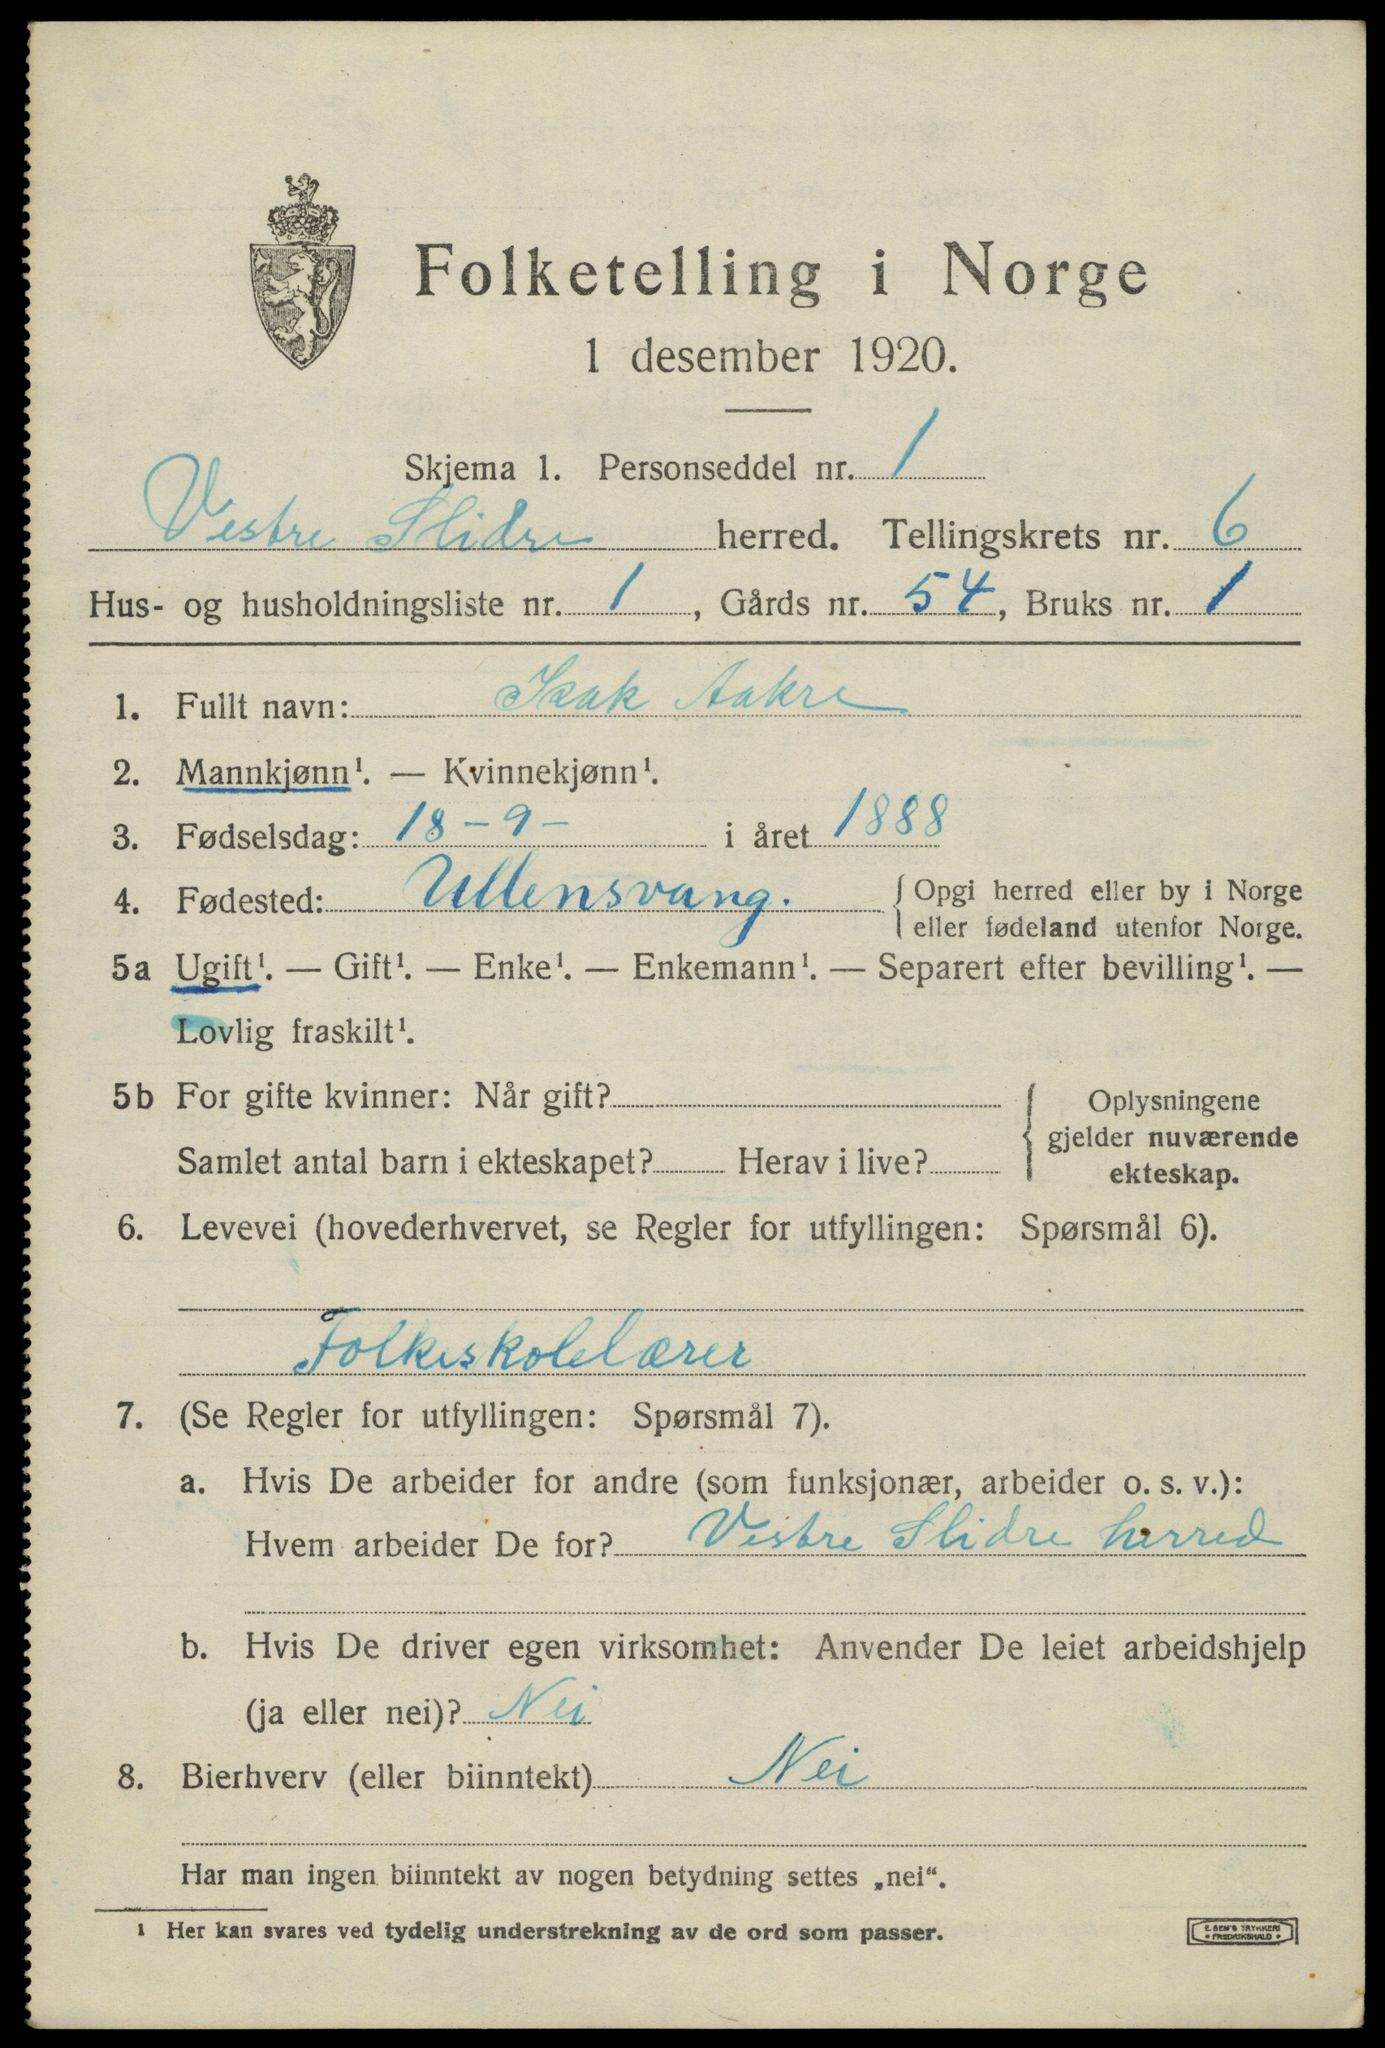 Folketelling i Norge
1 desember 1920.
Skjema 1. Personseddel nr. 1
Vestre Slidre herred. Tellingskrets nr. 6
Hus- og husholdningsliste nr. 1, Gårds nr. 54, Bruks nr. 1
1. Fullt navn: Isak Aakre
2. Mannkjønn¹. — Kvinnekjønn¹.
3. Fødselsdag: 18-9- i året 1888
4. Fødested: Ullensvang. { Opgi herred eller by i Norge
eller fødeland utenfor Norge.
5a Ugift¹. — Gift¹. — Enke¹. — Enkemann¹. — Separert efter bevilling¹. —
Lovlig fraskilt¹.
5b For gifte kvinner: Når gift?
Samlet antal barn i ekteskapet? Herav i live?
{ Oplysningene
gjelder nuværende
ekteskap.
6. Levevei (hovederhvervet, se Regler for utfyllingen: Spørsmål 6).
Folkeskolelærer
7. (Se Regler for utfyllingen: Spørsmål 7).
a. Hvis De arbeider for andre (som funksjonær, arbeider o. s. v.):
Hvem arbeider De for? Vestre Slidre herred
b. Hvis De driver egen virksomhet: Anvender De leiet arbeidshjelp
(ja eller nei)? Nei
8. Bierhverv (eller biinntekt) Nei
Har man ingen biinntekt av nogen betydning settes „nei“.
¹ Her kan svares ved tydelig understrekning av de ord som passer.
E. SEM'S TRYKKERI
• FREDRIKSHALD •